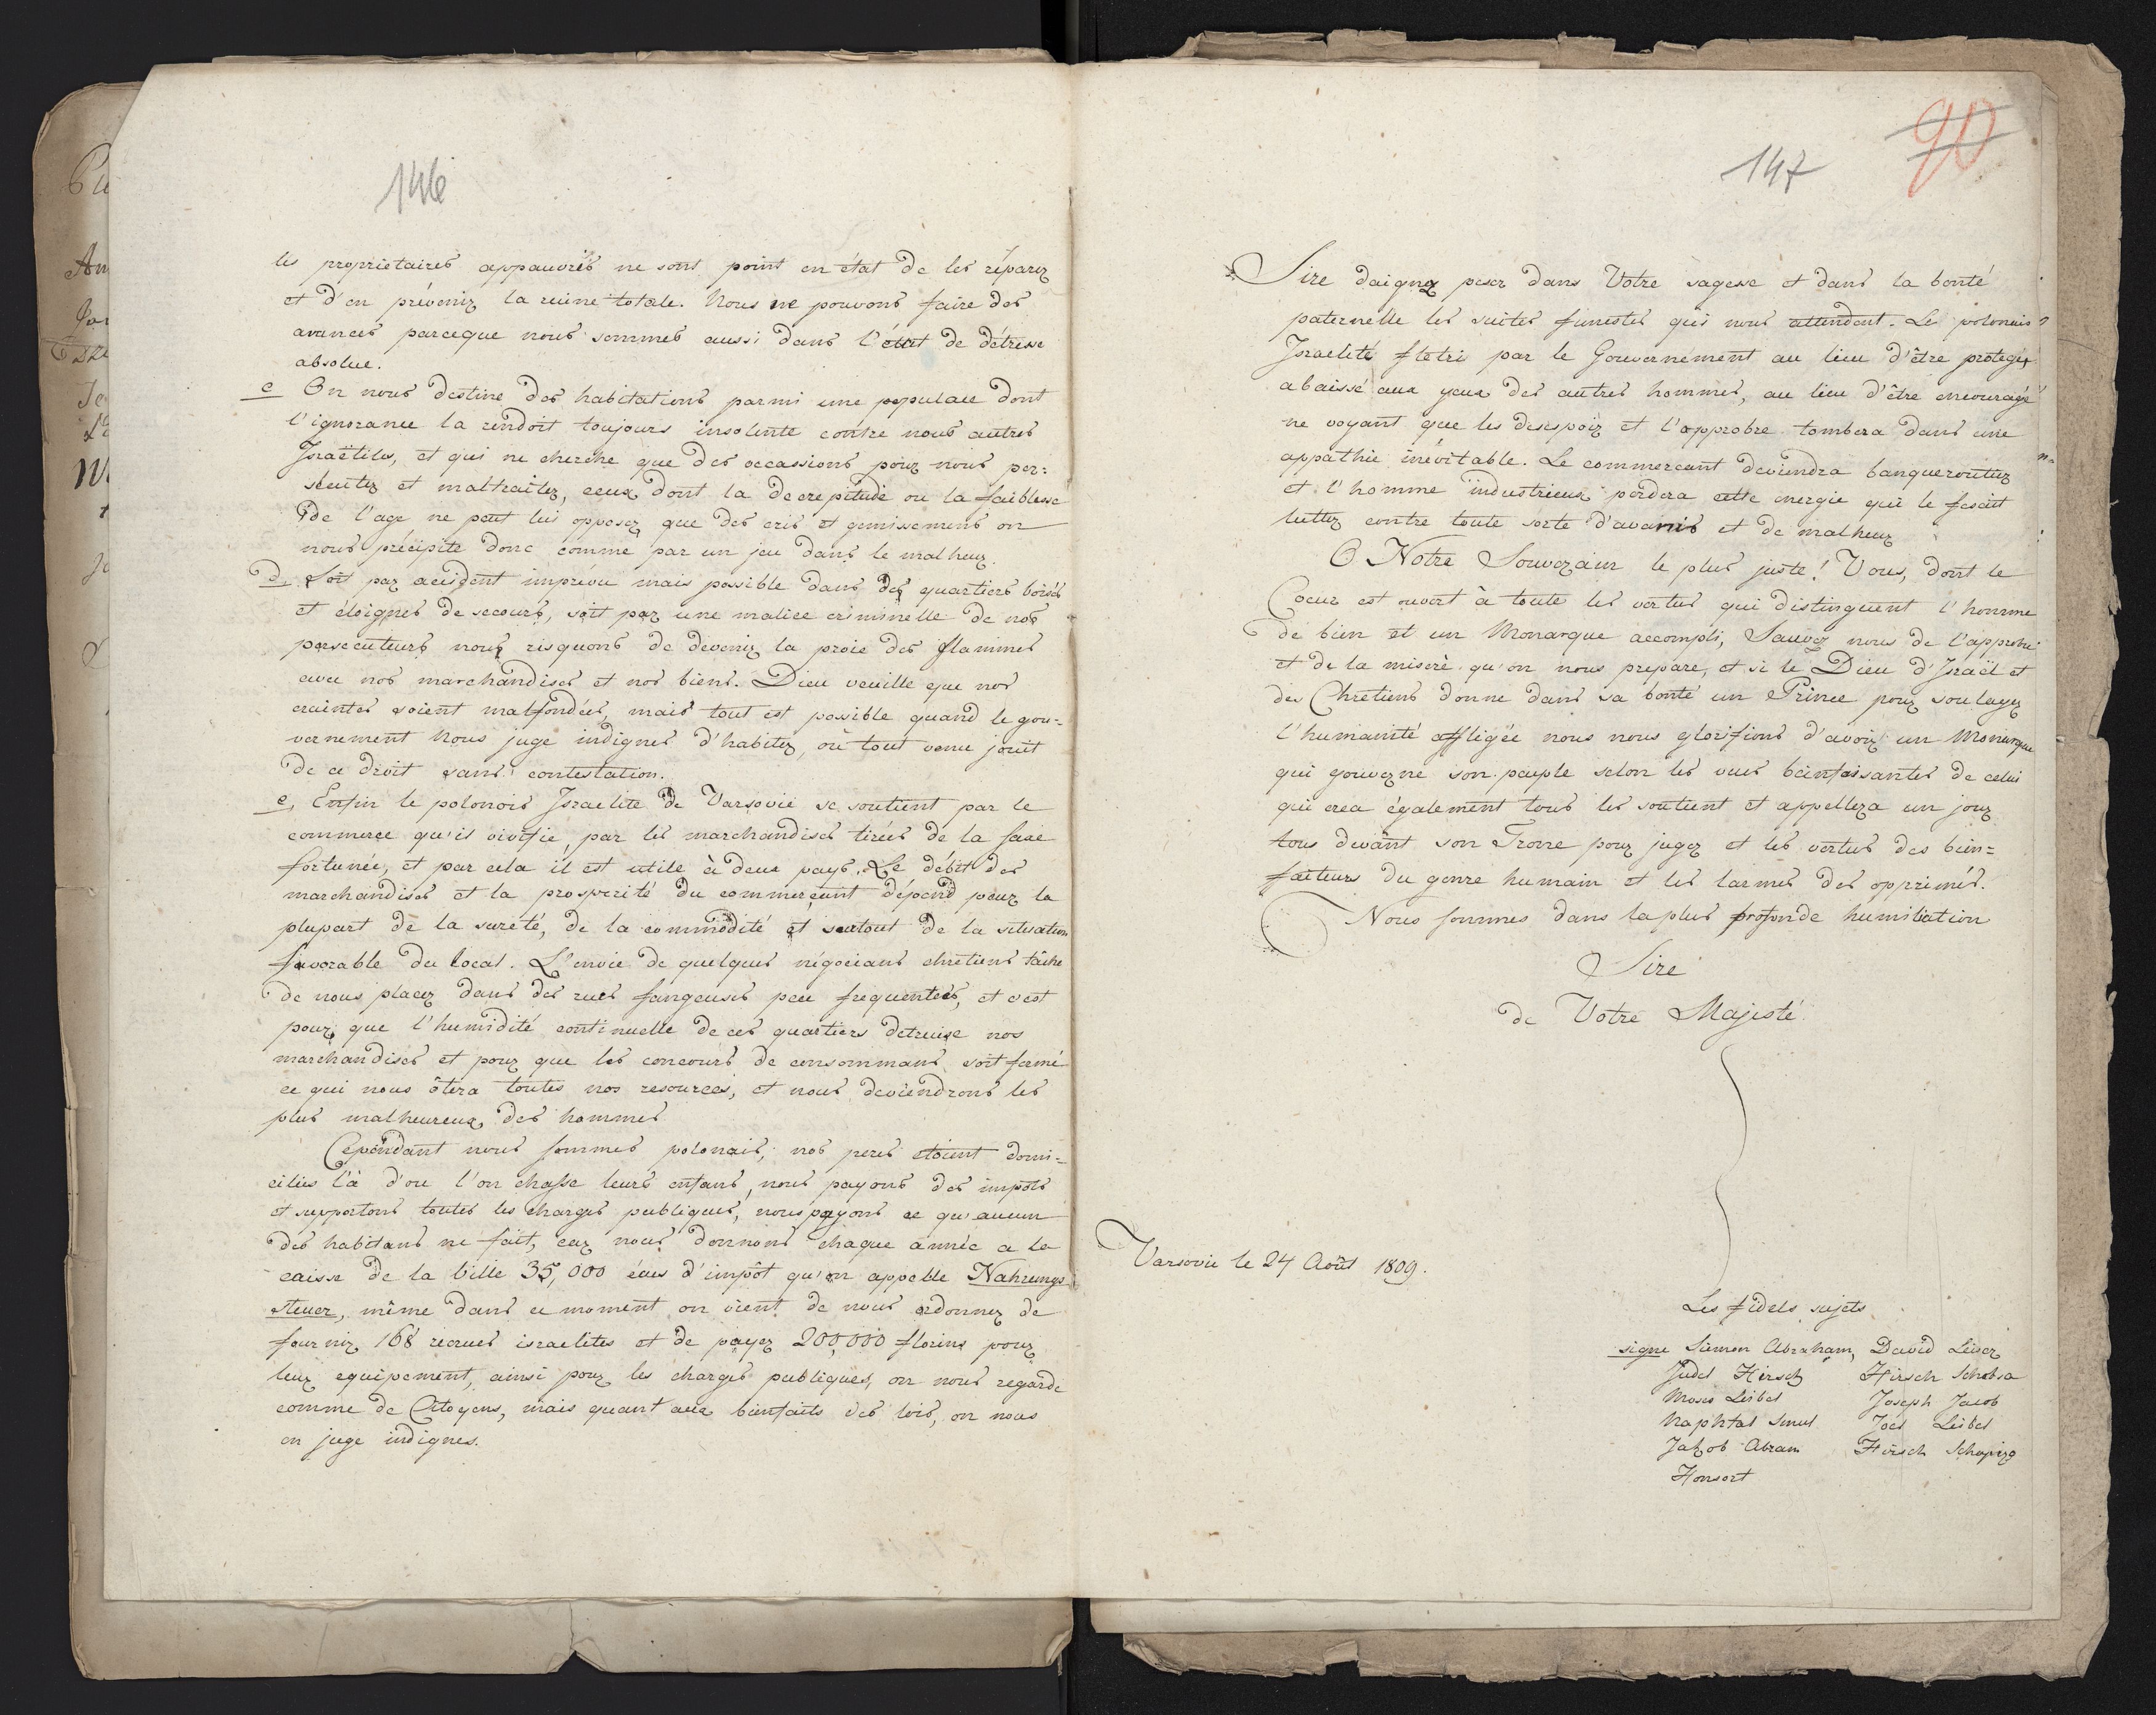 146
les propriétaires appauvrés ne sont point en état de les réparer
et d'en prévenir la ruine totale. Nous ne pouvons faire des
avances parceque nous sommes aussi dans l'état de détresse
absolue.
c On nous destine des habitations parmi une populace dont
l'ignorance la rendoit toujours insolente contre nous autres
Israëlites, et qui ne cherche que des occassions pour nous per=
séeutez et maltraitez, ceux dont la decrepitude ou la faiblesse
de l'age ne peut lui opposer que des cris et gemissements on
nous précipite donc comme par un jeu dans le malheur.
d. Soit par accident imprévu mais possible dans des quartiers boisés
et éloignés de secours, soit par une malice criminelle de nos
persecuteurs nous risquons de devenir la proie des flammes
avec nos marchandises et nos biens. Dieu veuille que nos
craintes soient malfondées, mais tout est possible quand le gou-
vernement nous juge indignes d'habiter, où tout venu jouit
de ce droit sans contestation.
e, Enfin le polonois Israelite de Varsovie se soutient par le
commerce qu'il vivifie, par les marchandises tirées de la saxe
fortunée, et par cela il est utile à deux pays. Le débit des
marchandises et la prosperité du commerçant dépend pour la
plupart de la sureté, de la commodité et surtout de la situation
favorable du local. L'envie de quelques négocians chrétiens tâche
de nous placer dans des rues fangeuses peu frequentées, et c'est
pour que l'humidité continuelle de ces quartiers detruise nos
marchandises et pour que les concours de consommans soit fermé
ce qui nous ôtera toutes nos resources, et nous deviendrons les
plus malheureux des hommes
Cependant nous sommes polonais, nos peres etoient domi=
ciliés là d'ou l'on chasse leurs enfans, nous payons des impots
et supportons toutes les charges publiques, nous payons ce qu'aucun
des habitans ne fait, car nous donnons chaque année a la
caisse de la ville 35,000 écus d'impôt qu'on appelle Nahrungs
steuer, même dans ce moment on vient de nous ordonner de
fournir 168 recrues israelites et de payer 200,000 florins pour
leur equipement, ainsi pour les charges publiques, on nous regarde
comme de Citoyens, mais quant aux bienfaits des lois, on nous
en juge indignes.
147
90
Sire daignez peser dans Votre sagesse et dans la bonté
paternelle les suites funestes qui nous attendent. Le polonais
Israelite fletri par le Gouvernement au lieu d'être protegé,
abaissé aux yeux des autres hommes, au lieu d'être encouragé
ne voyant que les desespoir et l'opprobre tombera dans une
appathie inévitable. Le commercant deviendra banqueroutier
et l'homme industrieux perdera cette energie qui le fesait
luttez contre toute sorte d'avanis et de malheur
O Notre Souverain le plus juste! Vous, dont le
Coeur est ouvert à toute les vertus qui distinguent l'homme
de bien et un Monarque accompli, Sauvez nous de l'opprobre
et de la misere qu'on nous prepare, et si le Dieu d'Israël et
des Chretiens donne dans sa bonté un Prince pour soulager
l'humanité affligée nous nous glorifions d'avoir un Monarque
qui gouverne son peuple selon les vues bienfaisantes de celui
qui crea également tous les soutient et appellera un jour
tous devant son Trone pour juger et les vertus des bien=
faiteurs du genre humain et les larmes des opprimés.
Nous sommes dans la plus profonde humiliation
Sire
de Votre Majesté
Varsovie le 24 Août 1809.
Les fidels sujets
signe Simon Abraham, David Leiser
Judel Hirsch Hirsch Schobsa
Moses Leibel Joseph Jacob
Naphtal Smul Joel Leibel
Jakob Abram Hirsch Schapiro
Konsort